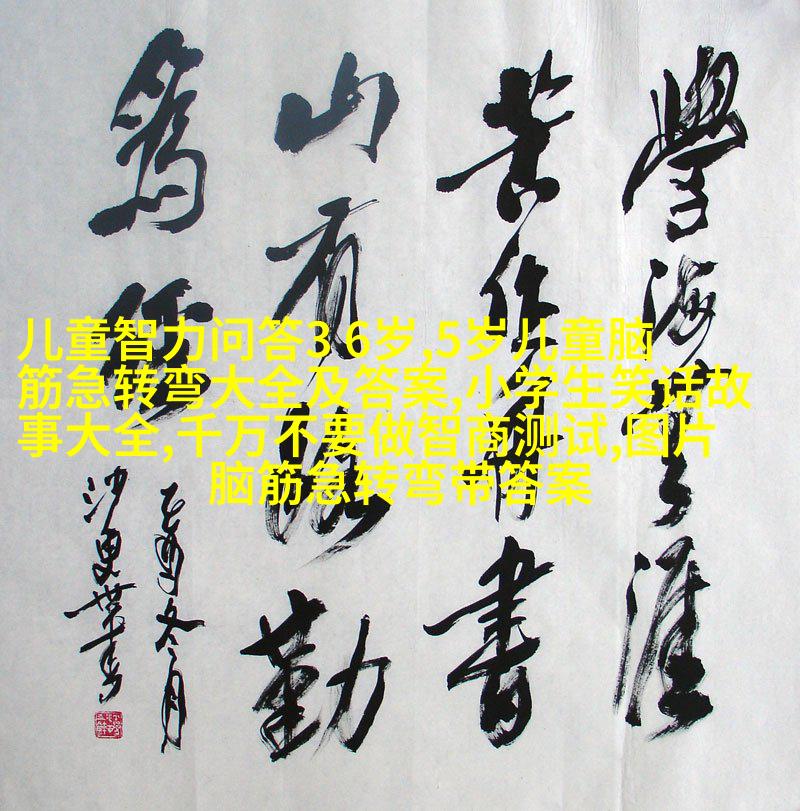 儿童智力问答3 6岁,5岁儿童脑
筋急转弯大全及答案,小学生笑话故
事大全,千万不要做智商测试,图片
脑筋急转弯带答案
學海無涯
苦作舟書
山有路勤
為徑
乙酉冬月